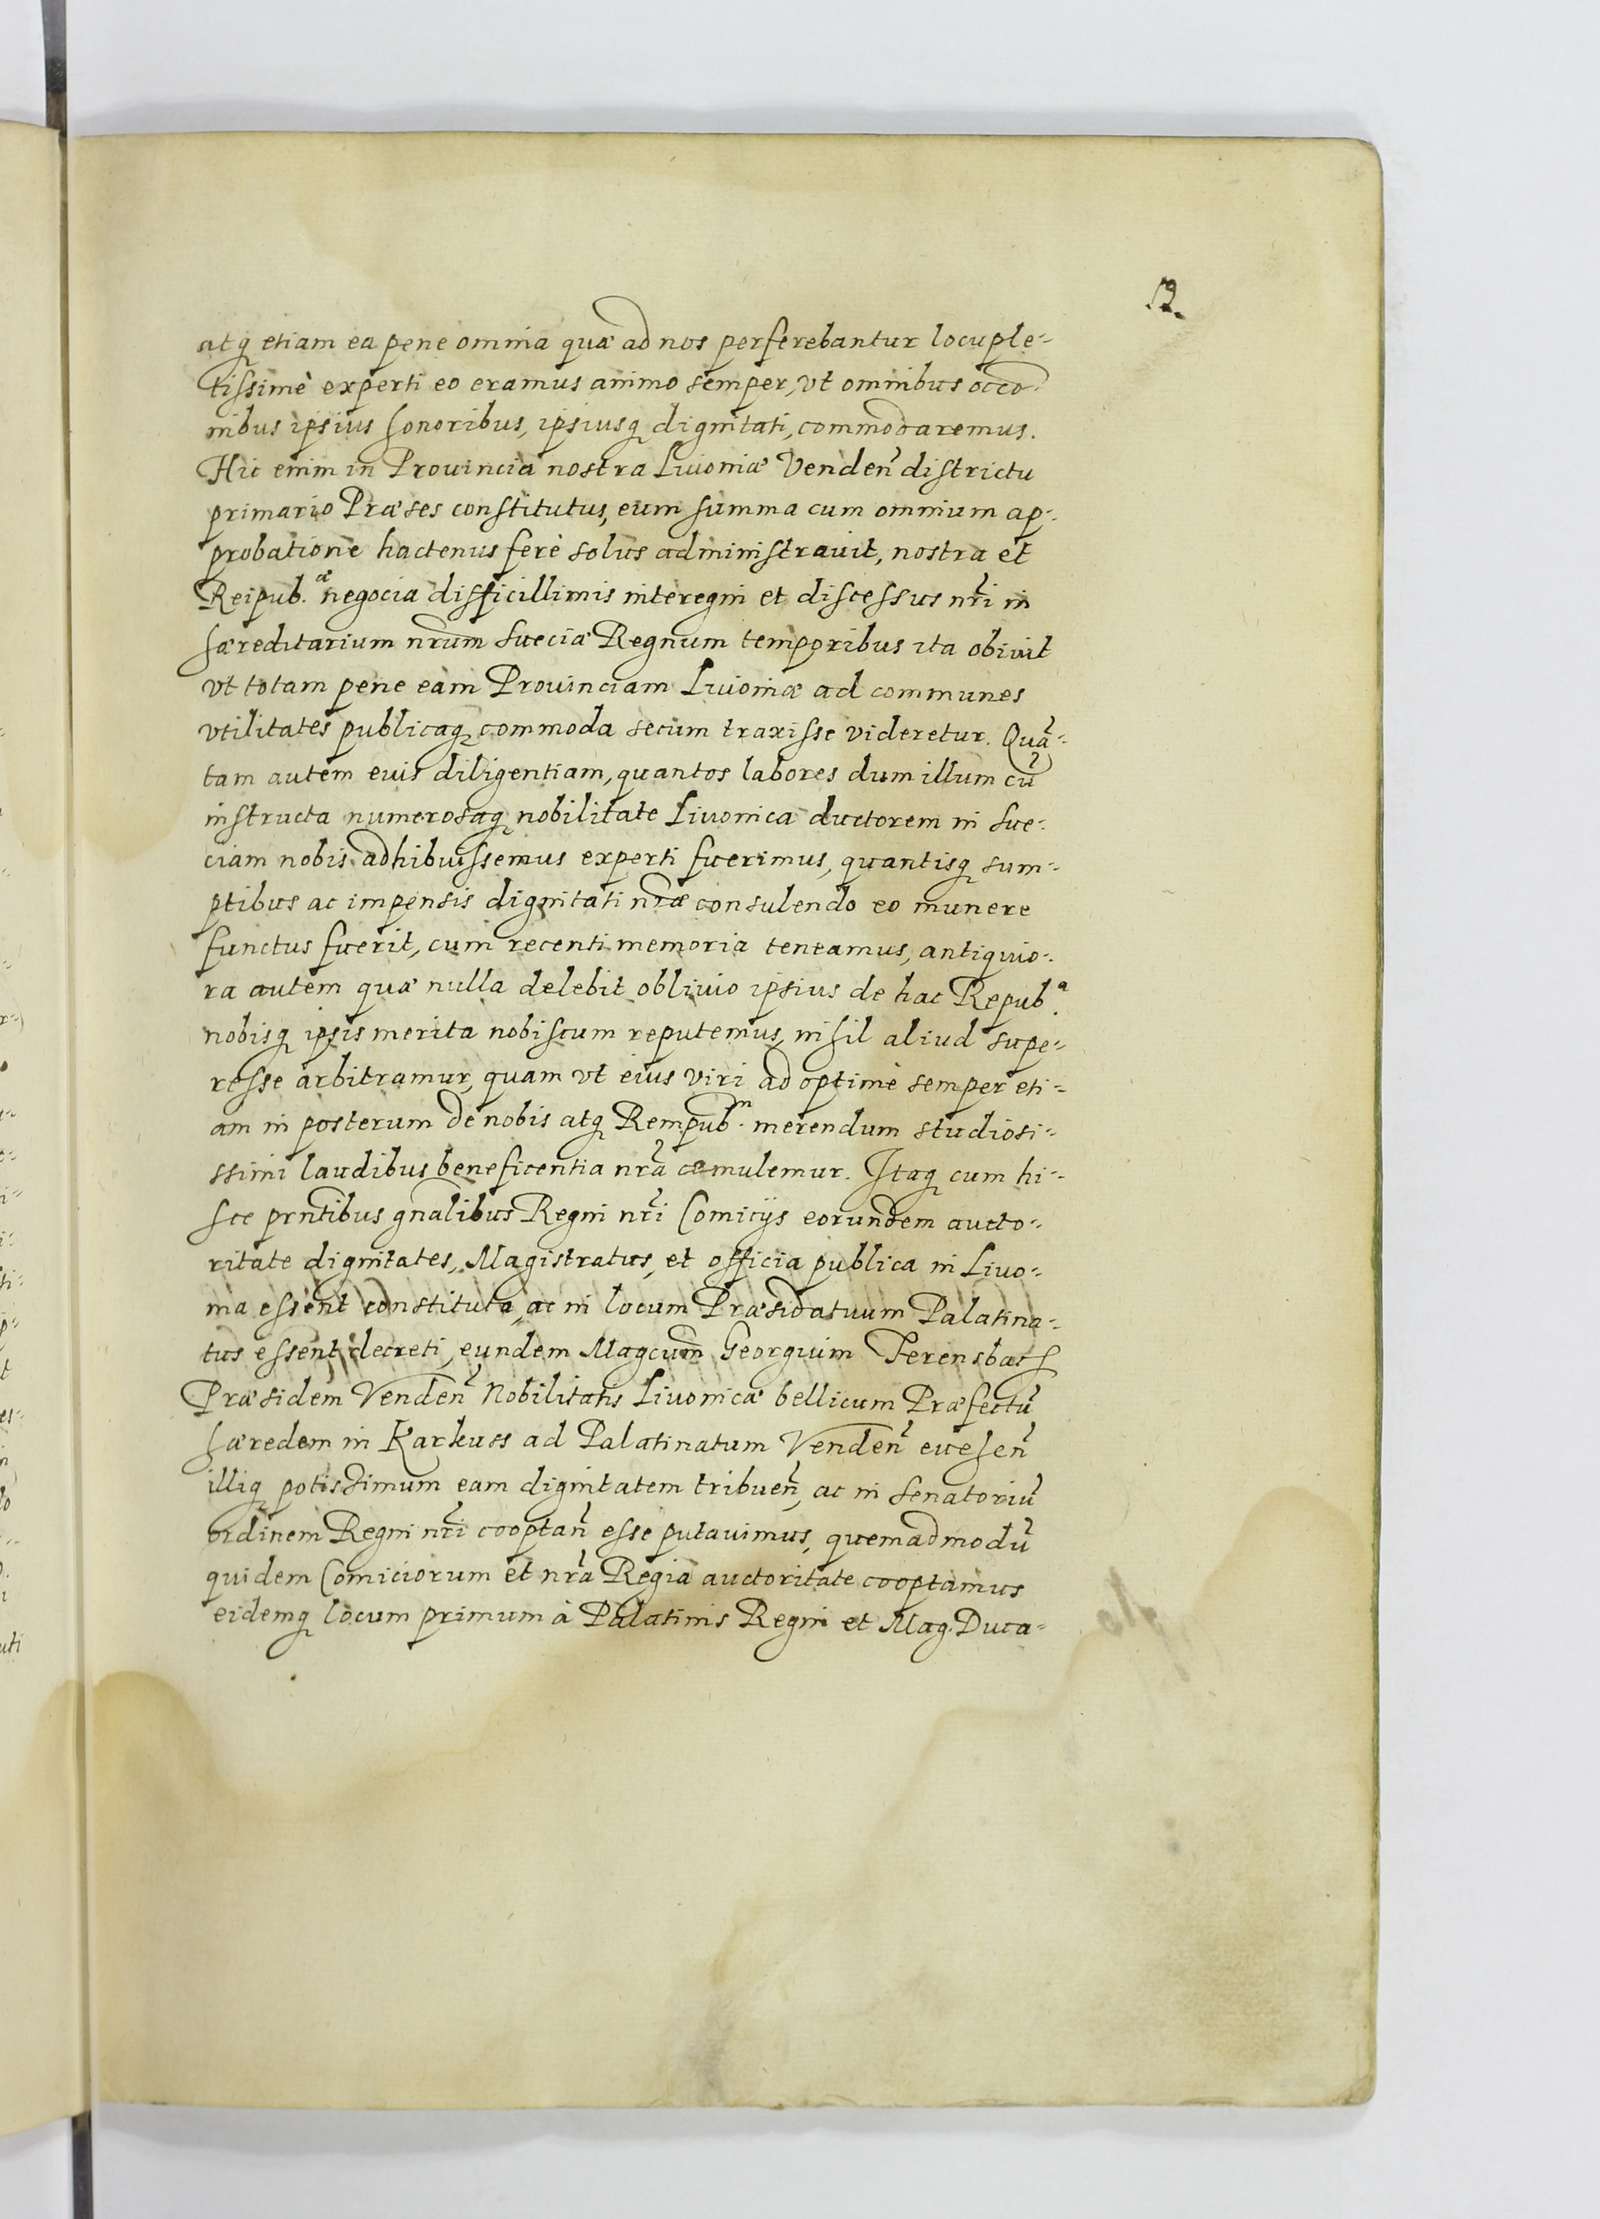 12.
atq₃ etiam ea pene omnia quæ ad nos perferebantur locuple=
tissimè experti eo eramus animo semper, vt omnibus occō
nibus ipsius honoribus, ipsiusq₃ dignitati, commodaremus.
Hic enim in Prouincia nostra Liuoniæ Venden̄ districtu
primario Præses constitutus, eum summa cum omnium ap=
probatione hactenus ferè solus administrauit, nostra et
Reipub.æ negocia difficillimis interegni et discessus nr̄i in
hæreditarium nrūm Sueciæ Regnum temporibus ita obiuit
vt totam pene eam Prouinciam Liuoniæ ad communes
vtilitates publicaq₃ commoda secum traxisse videretur. Quā=
tam autem euis diligentiam, quantos labores dum illum cū
instructa numerosaq₃ nobilitate Liuonica ductorem in Sue=
ciam nobis adhibuissemus experti fuerimus, quantisq₃ sum=
ptibus ac impensis dignitati nr̄æ consulendo eo munere
functus fuerit, cum recenti memoria teneamus, antiquio=
ra autem quæ nulla delebit obliuio ipsius de hac Repub.a
nobisq₃ ipsis merita nobiscum reputemus, nihil aliud supe=
resse arbitramur, quam vt eius viri ad optimè semper eti=
am in posterum de nobis atq₃ Rempub.m merendum studiosi=
ssimi laudibus beneficentia nr̄a cumulemur. Itaq₃ cum hi=
sce prn̄tibus gn̄alibus Regni nr̄i Comicijs eorundem aucto=
ritate dignitates, Magistratus, et officia publica in Liuo=
nia essent constituta, ac in locum Præsidatuum Palatina=
tus essent decreti, eundem Magcum̄ Georgium Ferensbach
Præsidem Venden̄ Nobilitatis Liuonicæ bellicum Præfectū
hæredem in Karkuss ad Palatinatum Venden̄ euehen̄
illiq₃ potissimum eam dignitatem tribuen̄, ac in Senatoriū
ordinem Regni nr̄i cooptan̄ esse putauimus, quemadmodū
quidem Comiciorum et nr̄a Regia auctoritate cooptamus
eidemq₃ locum primum à Palatinis Regni et Mag. Duca=